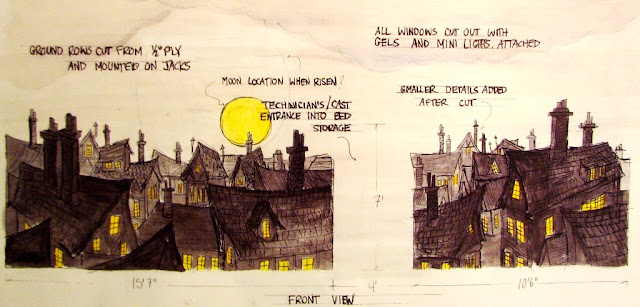 GROUND ROWS CUT FROM ½" PLY
AND MOUNTED ON JACKS
MOON LOCATION WHEN RISEN
TECHNICIAN'S/CAST
ENTRANCE INTO BED
STORAGE
ALL WINDOWS CUT OUT WITH
GELS AND MINI LIGHTS ATTACHED
SMALLER DETAILS ADDED
AFTER CUT
7'
15'7"
4'
10'6"
FRONT VIEW